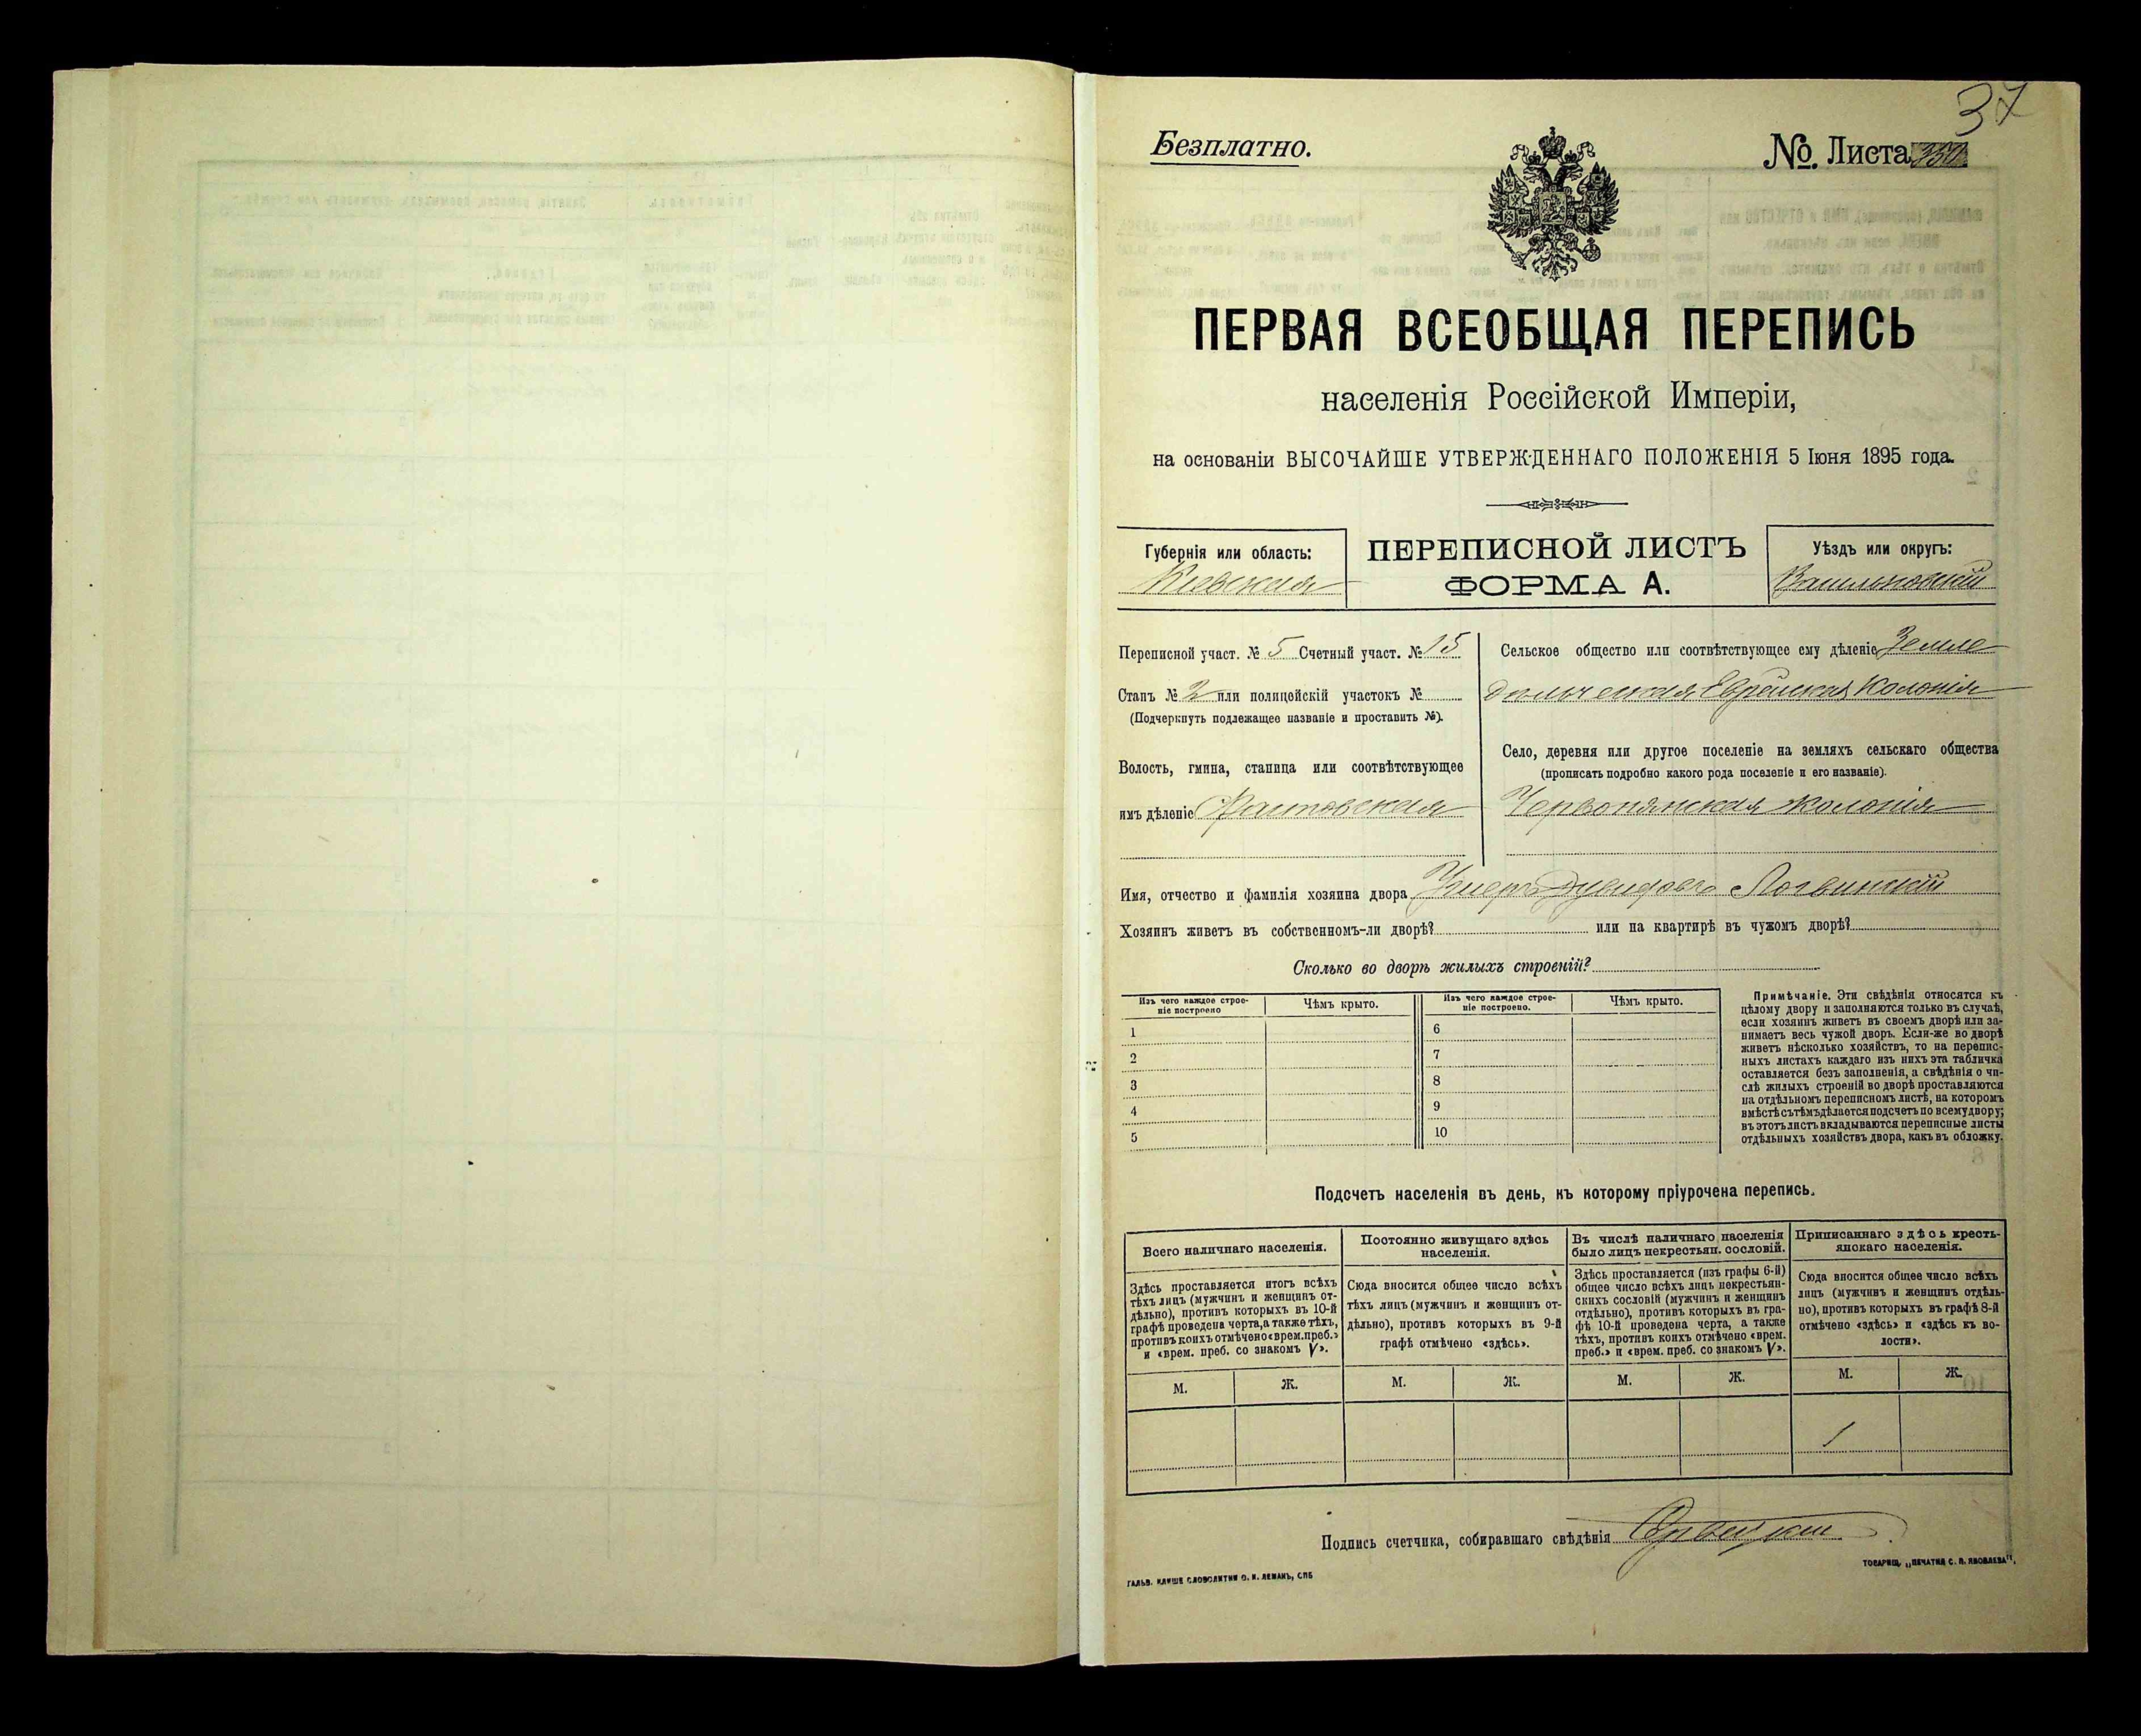 37
Безплатно.
№ Листа
ПЕРВАЯ ВСЕОБЩАЯ ПЕРЕПИСЬ
населенія Россійской Имперіи,
на основаніи ВЫСОЧАЙШЕ УТВЕРЖДЕННАГО ПОЛОЖЕНІЯ 5 Іюня 1895 года.
Губернія или область:
Кіевская
ПЕРЕПИСНОЙ ЛИСТЪ
ФОРМА А.
Уѣздъ или округъ:
Васильковскій
Переписной участ. № 5 Счетный участ. № 15
Станъ № 2 или полицейскій участокъ №
(Подчеркнуть подлежащее названіе и проставить №).
Волость, гмина, станица или соотвѣтствующее
имъ дѣленіе
Сельское общество или соотвѣтствующее ему дѣленіе Земле
дѣльческая Еврейская Колонія
Село, деревня или другое поселеніе на земляхъ сельскаго общества
(прописать подробно какого рода поселеніе и его названіе).
Червонянская колонія
Имя, отчество и фамилія хозяина двора Логвинскій
Хозяинъ живетъ въ собственномъ-ли дворѣ? или на квартирѣ въ чужомъ дворѣ?
Сколько во дворѣ жилыхъ строеній?
Изъ чего каждое строе-
ніе построено
Чѣмъ крыто.
1
2
3
4
5
Изъ чего каждое строе-
ніе построено.
Чѣмъ крыто.
6
7
8
9
10
Примѣчаніе. Эти свѣдѣнія относятся къ
цѣлому двору и заполняются только въ случаѣ,
если хозяинъ живетъ въ своемъ дворѣ или за-
нимаетъ весь чужой дворъ. Если-же во дворѣ
живетъ нѣсколько хозяйствъ, то на перепис-
ныхъ листахъ каждаго изъ нихъ эта табличка
оставляется безъ заполненія, а свѣдѣнія о чи-
слѣ жилыхъ строеній во дворѣ проставляются
на отдѣльномъ переписномъ листѣ, на которомъ
вмѣстѣ съ тѣмъ дѣлается подсчетъ по всему двору;
въ этотъ листъ вкладываются переписные листы
отдѣльныхъ хозяйствъ двора, какъ въ обложку.
Подсчетъ населенія въ день, къ которому пріурочена перепись.
Всего наличнаго населенія.
Здѣсь проставляется итогъ всѣхъ
тѣхъ лицъ (мужчинъ и женщинъ от-
дѣльно), противъ которыхъ въ 10-й
графѣ проведена черта, а также тѣхъ,
противъ коихъ отмѣчено «врем. преб.»
и «врем. преб. со знакомъ V».
М. Ж.
Постоянно живущаго здѣсь
населенія.
Сюда вносится общее число всѣхъ
тѣхъ лицъ (мужчинъ и женщинъ от-
дѣльно), противъ которыхъ въ 9-й
графѣ отмѣчено «здѣсь».
М. Ж.
Въ числѣ наличнаго населенія
было лицъ некрестьян. сословій.
Здѣсь проставляется (изъ графы 6-й)
общее число всѣхъ лицъ некрестьян-
скихъ сословій (мужчинъ и женщинъ
отдѣльно), противъ которыхъ въ гра-
фѣ 10-й проведена черта, а также
тѣхъ, противъ коихъ отмѣчено «врем.
преб.» и «врем. преб. со знакомъ V».
М. Ж.
Приписаннаго здѣсь кресть-
янскаго населенія.
Сюда вносится общее число всѣхъ
лицъ (мужчинъ и женщинъ отдѣль-
но), противъ которыхъ въ графѣ 8-й
отмѣчено «здѣсь» и «здѣсь къ во-
лости».
М. Ж.
1
Подпись счетчика, собиравшаго свѣдѣнія
ГАЛЬВ. КЛИШЕ СЛОВОЛИТНИ О. И. ЛЕМАНЪ, СПБ
ТОВАРИЩ. „ПЕЧАТНЯ С. П. ЯКОВЛЕВА“.